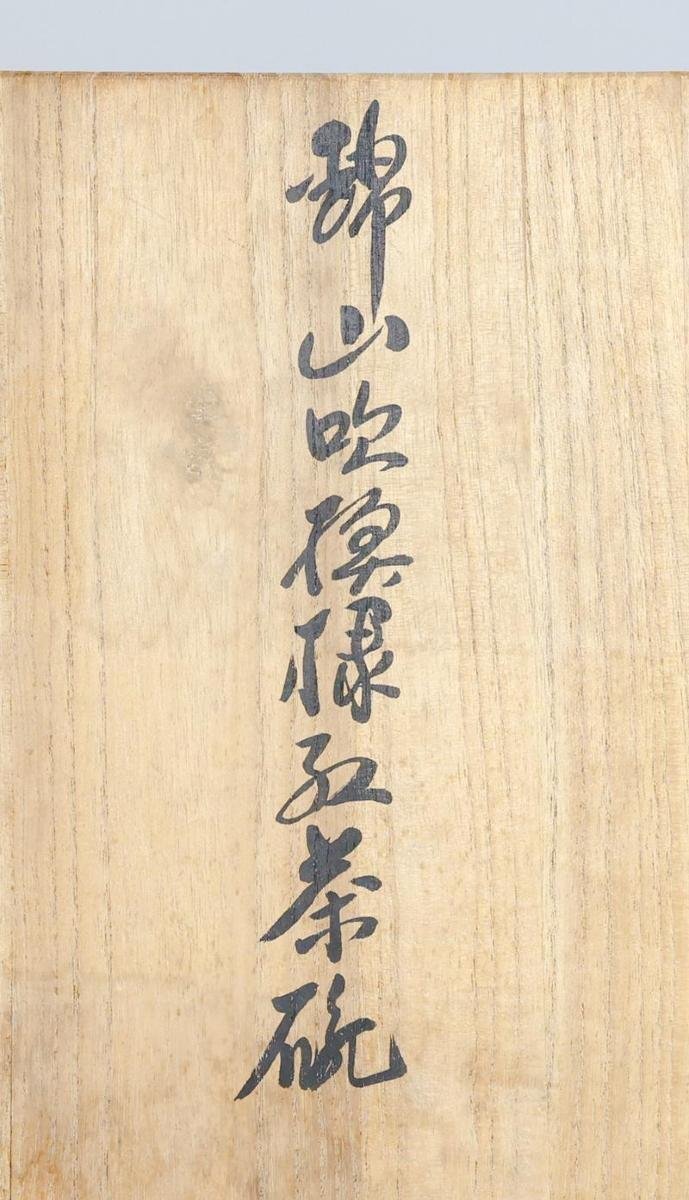 錦山吹模様紅茶碗